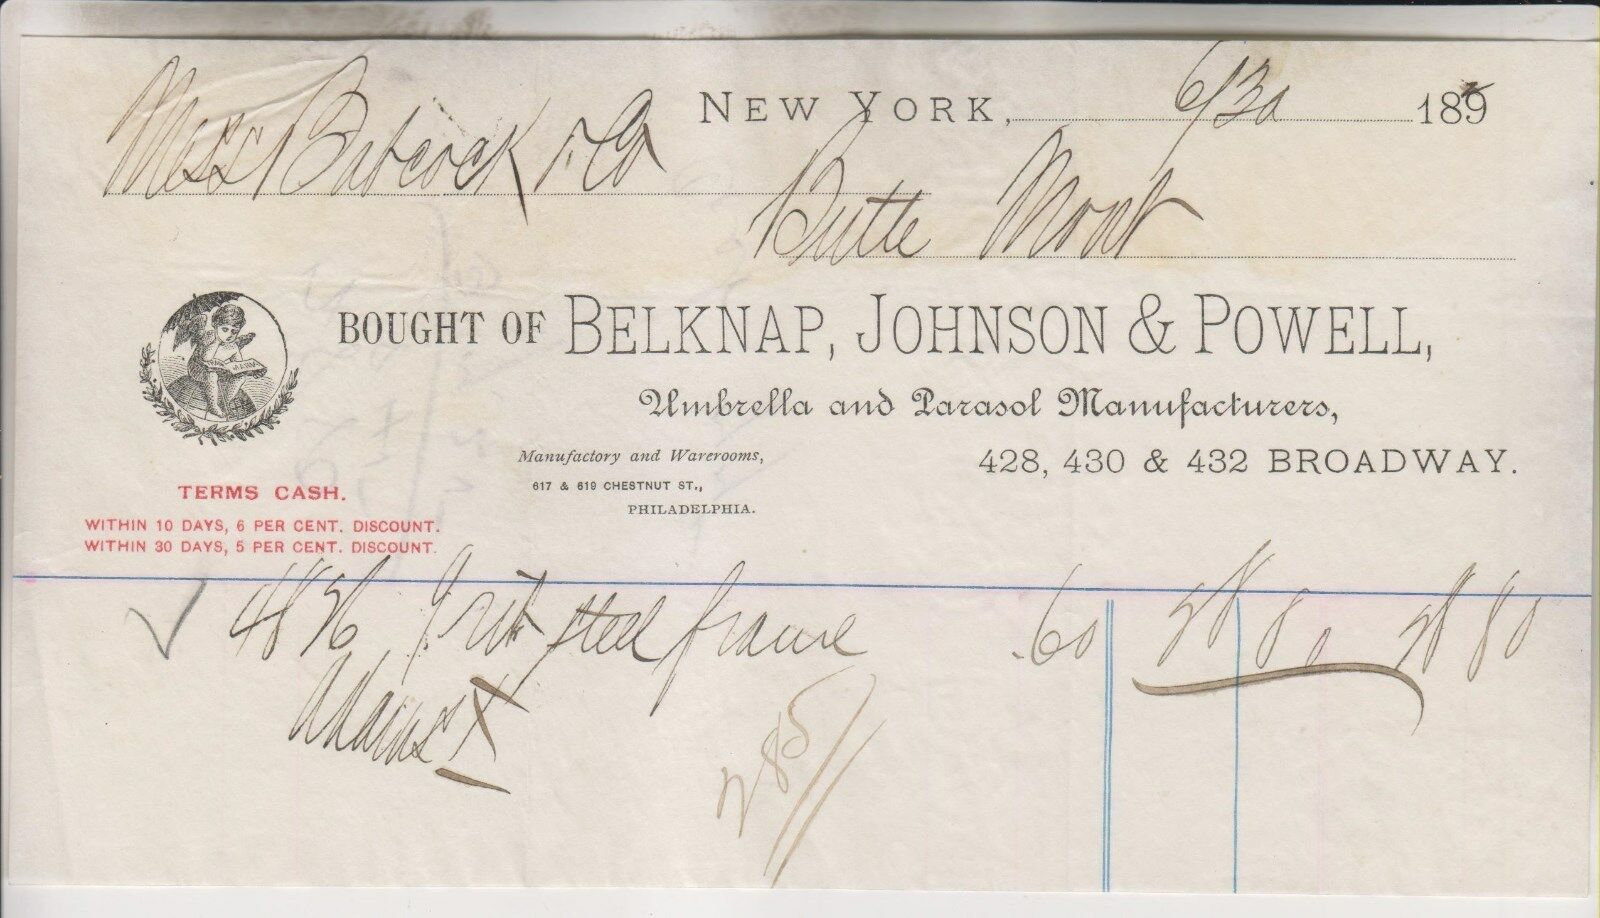 NEW YORK, 6/30 189
Mess Babcock & Co
Butte Mont
BOUGHT OF BELKNAP, JOHNSON & POWELL,
Umbrella and Parasol Manufacturers,
Manufactory and Warerooms, 428, 430 & 432 BROADWAY.
617 & 619 CHESTNUT ST.,
PHILADELPHIA.
TERMS CASH.
WITHIN 10 DAYS, 6 PER CENT. DISCOUNT.
WITHIN 30 DAYS, 5 PER CENT. DISCOUNT.
48 steel frame .60 28 80 28 80
Adams X
285